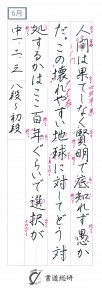 6月
人間は果てしなく賢明で底知れず愚か
だ。この壊れやすい地球に対してどう対
処するかはここ百年ぐらいで選択が
中一・二・三 八段～初段
書道総研